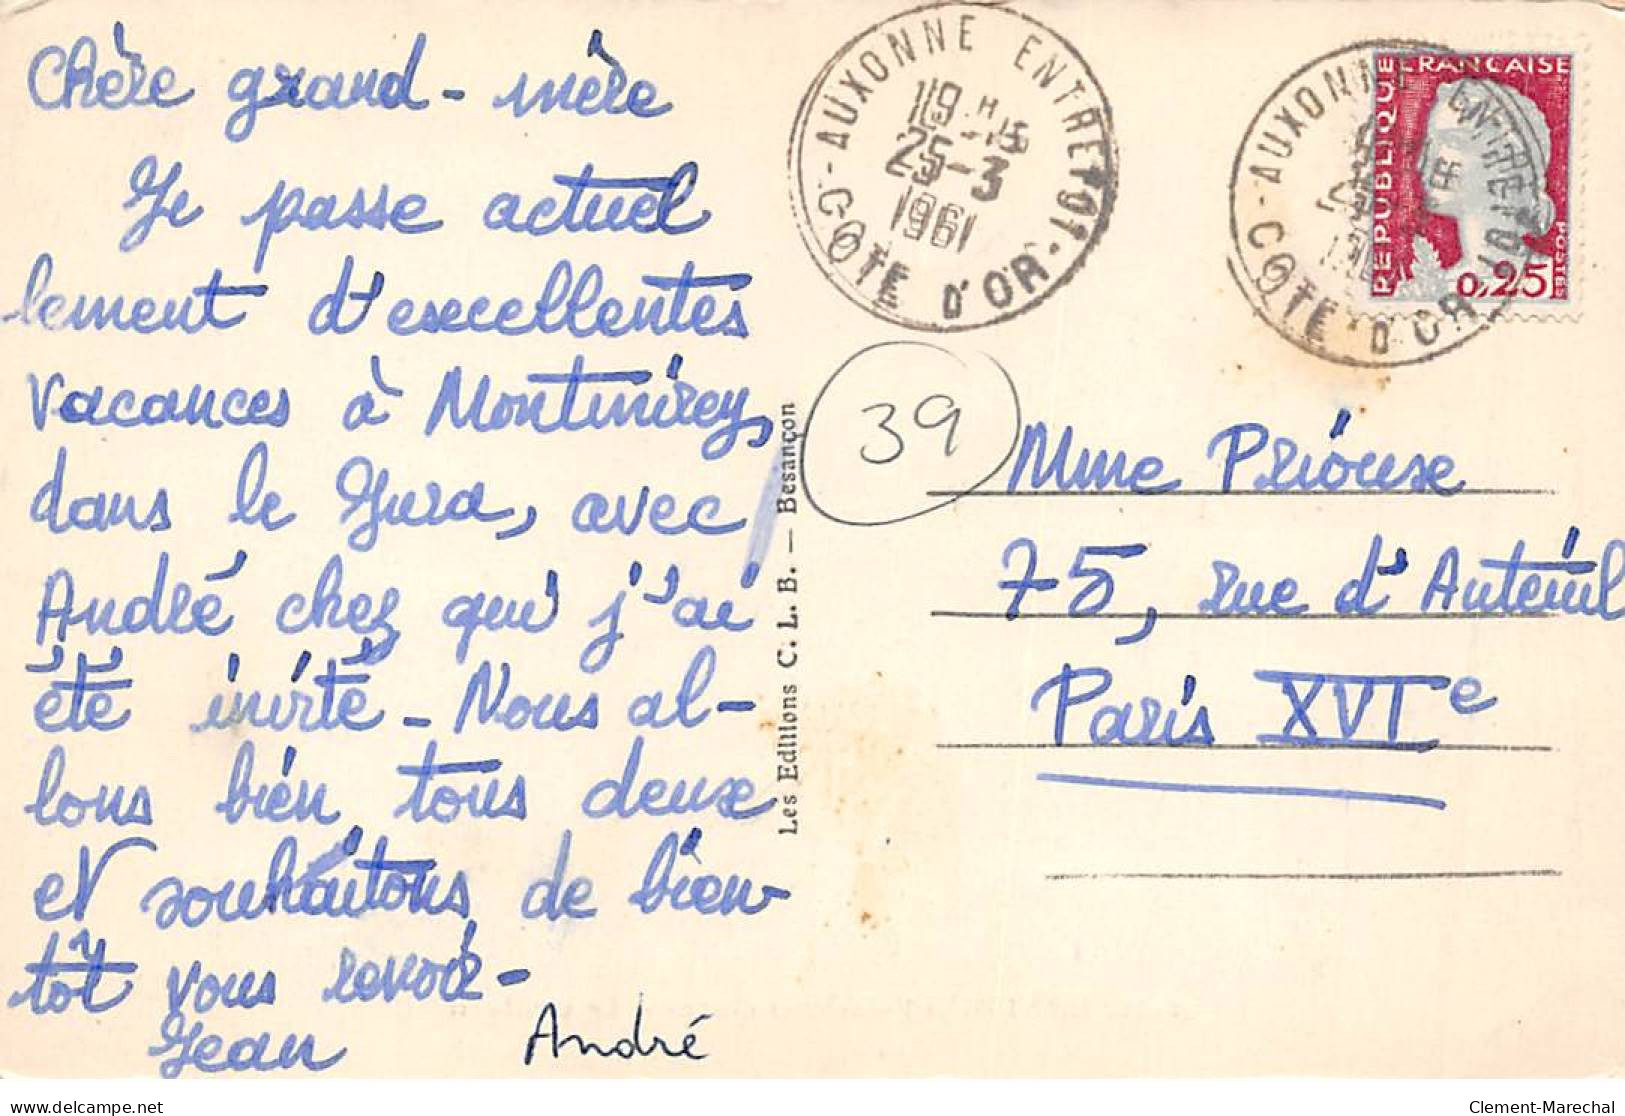 Chère grand-mère
Je passe actuel
lement d'excellentes
vacances à Montmirey,
dans le Jura, avec
André chez qui j'ai
été invité - Nous al-
lons bien tous deux
et souhaitons de bien-
tôt vous revoir -
Jean
André
Les Editions C. L. B. — Besançon
39
AUXONNE ENTREPOT
19 H 15
25-3
1961
COTE D'OR
AUXONNE ENTREPOT
COTE D'OR
REPUBLIQUE FRANCAISE
POSTES
0,25
Mme Priouse
75, rue d'Auteuil
Paris XVIe
Clement-Marechal